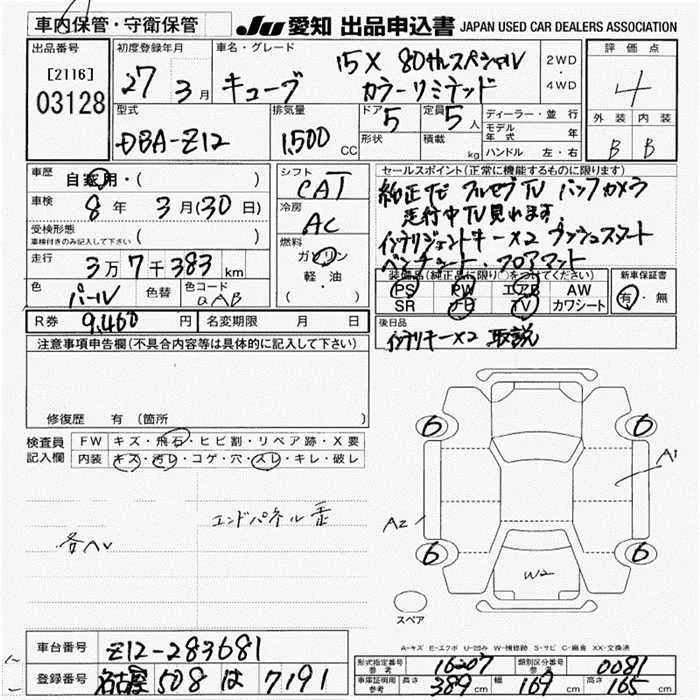 車内保管・守衛保管
JU 愛知 出品申込書 JAPAN USED CAR DEALERS ASSOCIATION
出品番号
[2116]
03128
初度登録年月
27 3月
車名・グレード
キューブ
15X 80thスペシャル
カラーリミテッド
2WD
・
4WD
評価点
4
外装 内装
B B
型式
DBA-Z12
排気量
1,500 CC
ドア 5
形状
定員 5 人
積載 kg
ディーラー・並行
モデル年式 年
ハンドル 左・右
車歴
自家用・( )
車検
8年 3月(30日)
受検形態
車検付きのみ記入して下さい ( )
走行
3万7千383km
色
パール
色替
色コード
QAB
R券 9,460円
名変期限 月 日
シフト
CAT
冷房
AC
燃料
ガソリン
軽・油
( )
セールスポイント(正常に機能するものに限ります)
純正ナビ フルセグTV バックカメラ
走行中TV見れます
インテリジェントキー×2 プッシュスタート
ベンチシート・フロアマット
装備品(純正品に限り○をつけてください)
PS PW エアB AW
SR ナビ TV カワシート
新車保証書
有・無
後日品
インテリキー×2 取説
注意事項申告欄(不具合内容等は具体的に記入して下さい)
修復歴 有(箇所 )
検査員記入欄
FW キズ・飛石・ヒビ割・リペア跡・X要
内装 キズ・汚レ・コゲ・穴・スレ・キレ・破レ
エンドパネル歪
各ヘコ
6 6
A1
A2
6 6
W2
スペア
A-キズ E-エクボ U-凹み W-補修跡 S-サビ C-腐食 XX-交換済
車台番号 Z12-283681
登録番号 名古屋 508 は 7191
形式指定番号 参考 16207
類別区分番号 参考 0081
車庫証明用参考 長さ 389cm 幅 169cm 高さ 165cm